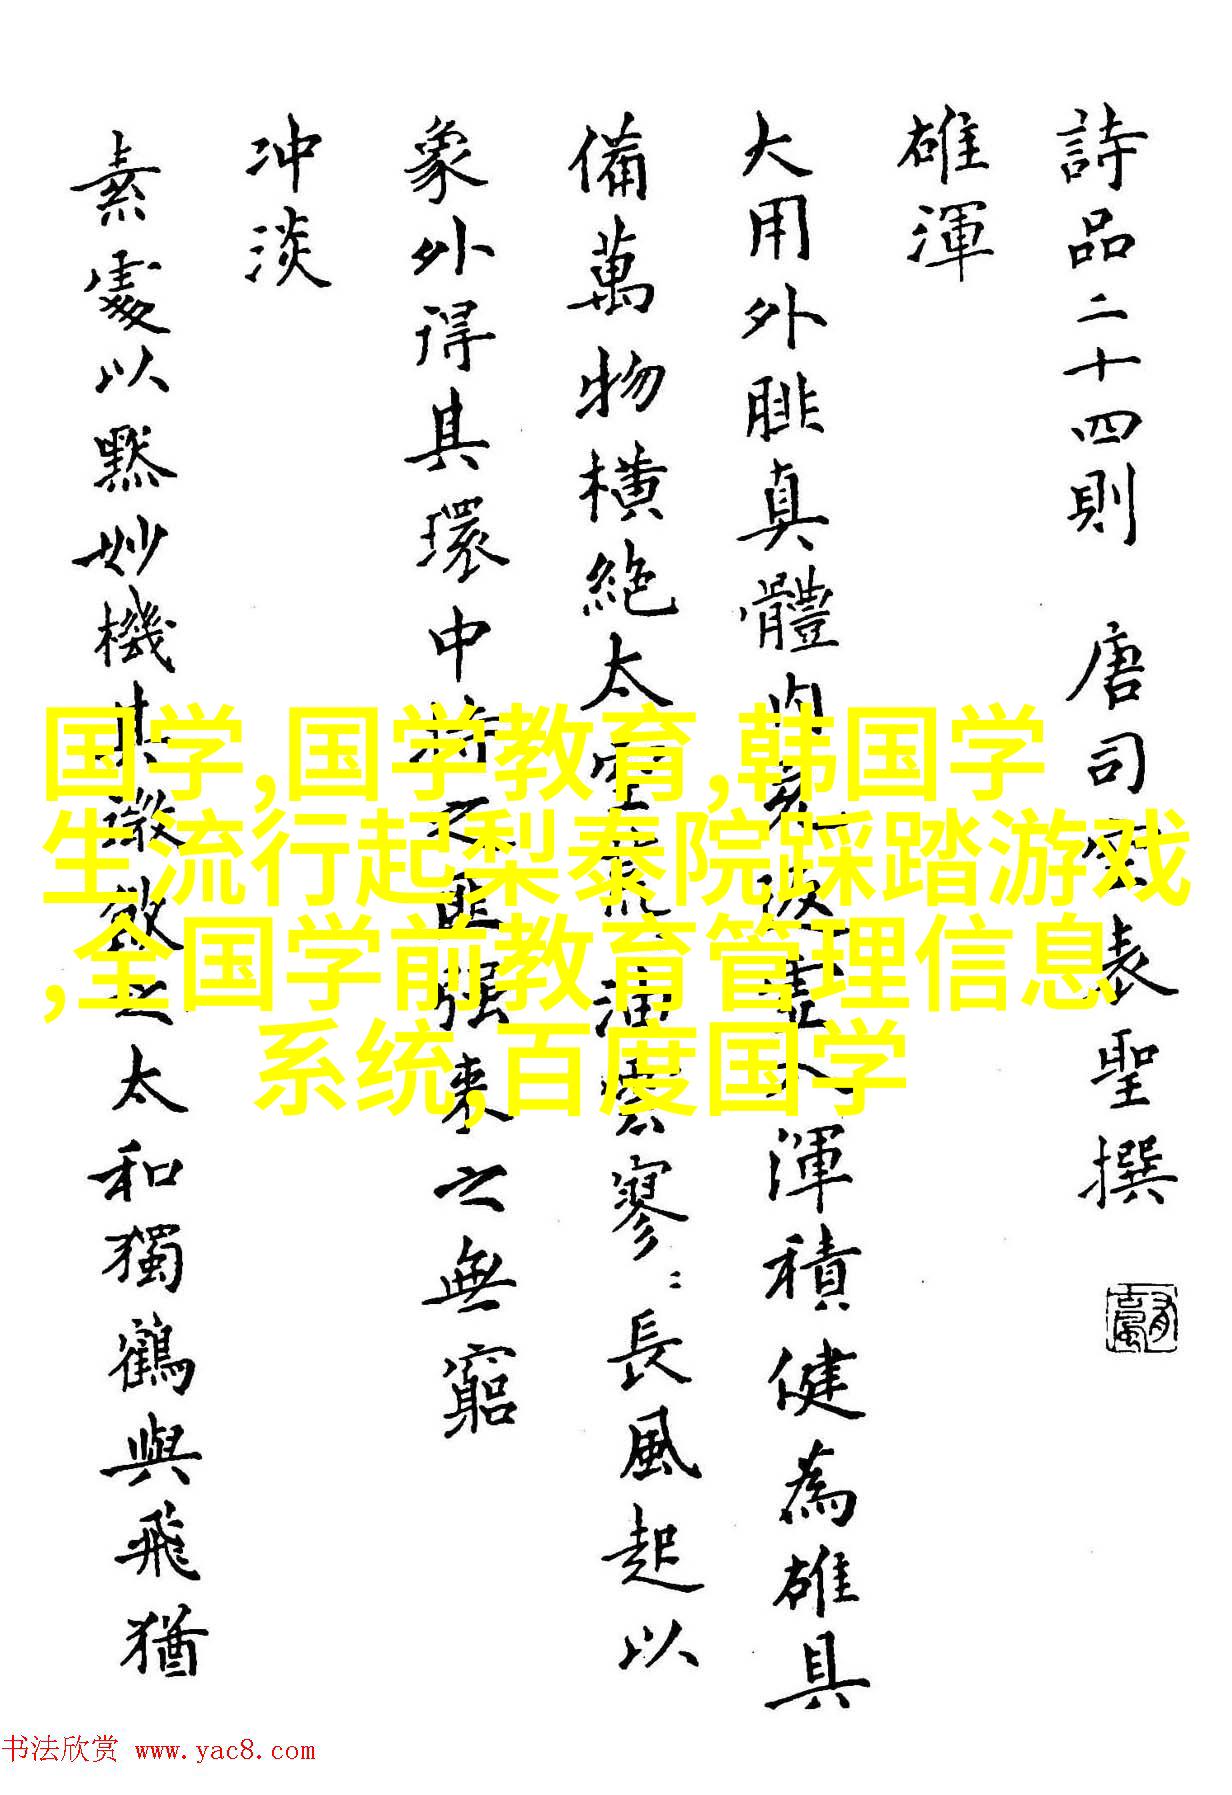 詩品二十四則 唐司空表聖撰
雄渾
大用外腓真體内充返虛入渾積健為雄具
備萬物橫絶太空荒荒油雲寥〻長風超以
象外得其環中持之匪强來之無窮
冲淡
素處以默妙機其微飲之太和獨鶴與飛猶
国学,国学教育,韩国学
生流行起梨泰院踩踏游戏
,全国学前教育管理信息
系统,百度国学
书法欣赏 www.yac8.com